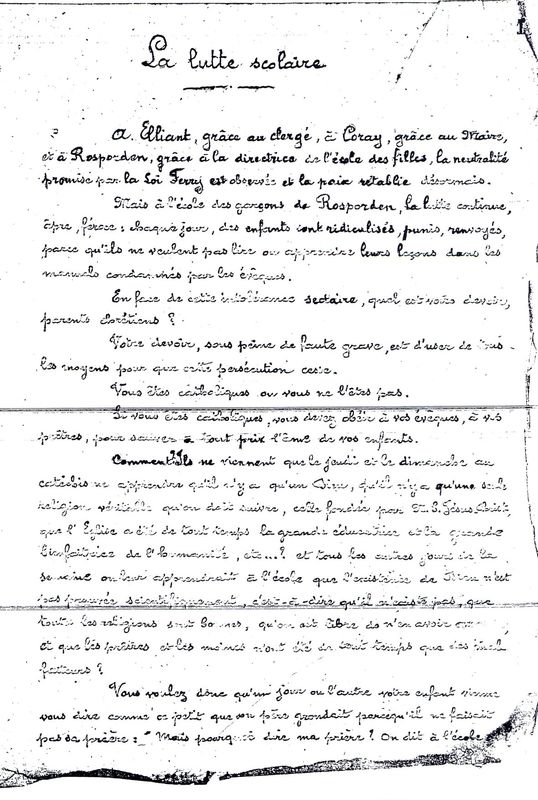 I
La lutte scolaire
A Elliant, grâce au clergé, à Coray, grâce au Maire,
et à Rosporden, grâce à la directrice de l'école des filles, la neutralité
promise par la Loi Ferry est observée et la paix rétablie désormais.
Mais à l'école des garçons de Rosporden, la lutte continue,
âpre, féroce : chaque jour, des enfants sont ridiculisés, punis, renvoyés,
parce qu'ils ne veulent pas lire ou apprendre leurs leçons dans les
manuels condamnés par les évêques.
En face de cette intolérance sectaire, quel est votre devoir,
parents chrétiens ?
Votre devoir, sous peine de faute grave, est d'user de tous
les moyens pour que cette persécution cesse.
Vous êtes catholiques ou vous ne l'êtes pas.
Si vous êtes catholiques, vous devez obéir à vos évêques, à vos
prêtres, pour sauver à tout prix l'âme de vos enfants.
Comment ? Ils ne viennent que le jeudi et le dimanche au
catéchisme apprendre qu'il n'y a qu'un Dieu, qu'il n'y a qu'une seule
religion véritable qu'on doit suivre, celle fondée par N. S. Jésus-Christ,
que l'Eglise a été de tout temps la grande éducatrice et la grande
bienfaitrice de l'humanité, etc...? et tous les autres jours de la
semaine on leur apprendrait à l'école que l'existence de Dieu n'est
pas prouvée scientifiquement, c'est-à-dire qu'il n'existe pas, que
toutes les religions sont bonnes, qu'on est libre de n'en avoir
et que les prêtres et les moines n'ont été de tout temps que des mal
faiteurs ?
Vous voulez donc qu'un jour ou l'autre votre enfant vienne
vous dire comme ce petit que son père grondait parcequ'il ne faisait
pas sa prière : " Mais pourquoi dire ma prière ? On dit à l'école